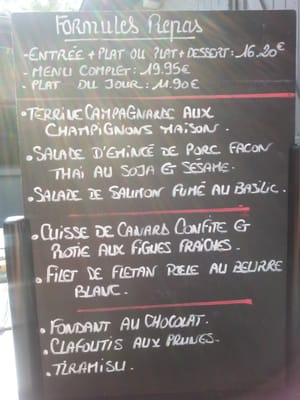 Formules Repas
- ENTRÉE + PLAT OU PLAT + DESSERT : 16.20€
- MENU COMPLET : 19.95€
- PLAT DU JOUR : 11.90€
• TERRINE CAMPAGNARDE AUX
CHAMPIGNONS MAISON.
• SALADE D'EMINCÉ DE PORC FACON
THAI AU SOJA ET SÉSAME.
• SALADE DE SAUMON FUMÉ AU BASILIC.
• CUISSE DE CANARD CONFITE ET
ROTIE AUX FIGUES FRAICHES.
• FILET DE FLETAN POELE AU BEURRE
BLANC.
• FONDANT AU CHOCOLAT.
• CLAFOUTIS AUX PRUNES.
• TIRAMISU.